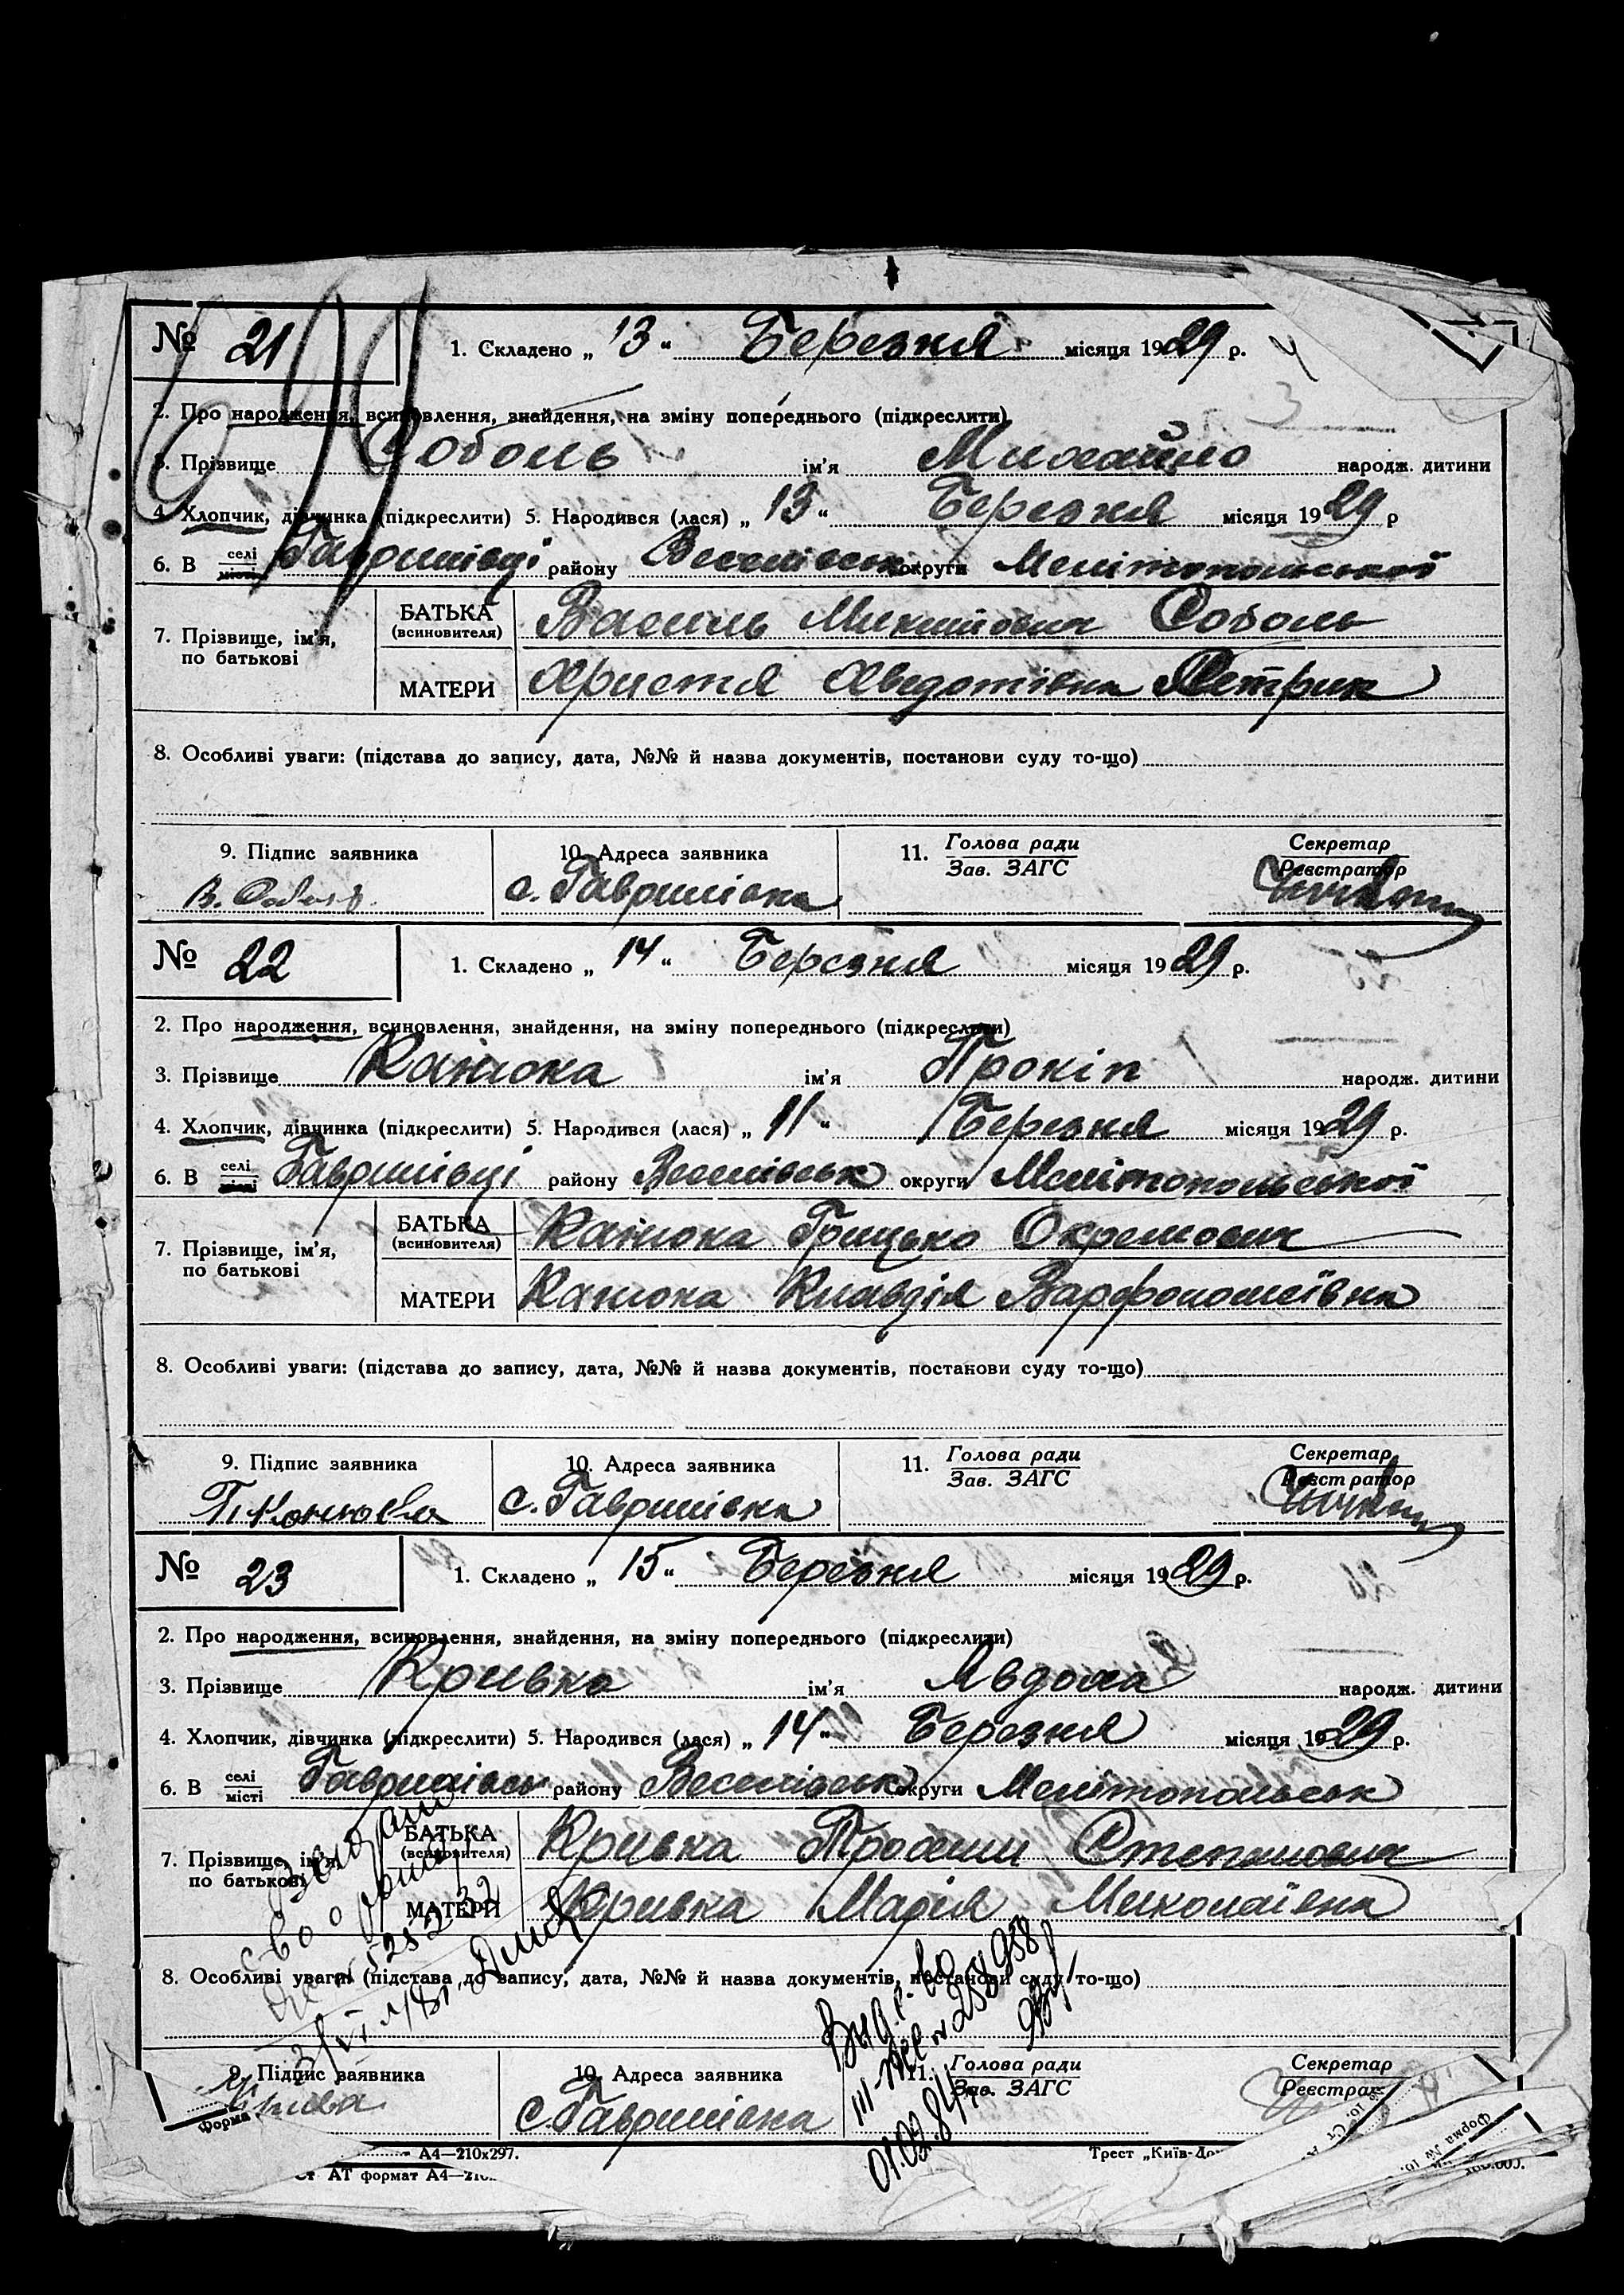 № 21 1. Складено „ 13 “ Березня місяця 1929 р.
2. Про народження, всиновлення, знайдення, на зміну попереднього (підкреслити)
3. Прізвище Соболь ім'я Михайло народж. дитини
4. Хлопчик, дівчинка (підкреслити) 5. Народився (лася) „ 13 “ Березня місяця 1929 р
6. В селі місті Гавришівці району Веселівськ округи Мелітопольської
7. Прізвище, ім'я, по батькові
БАТЬКА (всиновителя) Василь Соболь
МАТЕРИ Христя Петрик
8. Особливі уваги: (підстава до запису, дата, №№ й назва документів, постанови суду то-що)
9. Підпис заявника 10. Адреса заявника 11. Голова ради Зав. ЗАГС Секретар Реєстратор
В. Соболь с. Гавришівка
№ 22 1. Складено „ 14 “ Березня місяця 1929 р.
2. Про народження, всиновлення, знайдення, на зміну попереднього (підкреслити)
3. Прізвище Канюка ім'я Прокіп народж. дитини
4. Хлопчик, дівчинка (підкреслити) 5. Народився (лася) „ 11 “ Березня місяця 1929 р.
6. В селі Гавришівці району Веселівськ округи Мелітопольської
7. Прізвище, ім'я, по батькові
БАТЬКА (всиновителя) Канюка Грицько Охремович
МАТЕРИ Канюка Клавдія Варфоломеївна
8. Особливі уваги: (підстава до запису, дата, №№ й назва документів, постанови суду то-що)
9. Підпис заявника 10. Адреса заявника 11. Голова ради Зав. ЗАГС Секретар Реєстратор
с. Гавришівка
№ 23 1. Складено „ 15 “ Березня місяця 1929 р.
2. Про народження, всиновлення, знайдення, на зміну попереднього (підкреслити)
3. Прізвище Кривко ім'я Явдоха народж. дитини
4. Хлопчик, дівчинка (підкреслити) 5. Народився (лася) „ 14 “ Березня місяця 1929 р.
6. В селі місті Гавришівськ району Веселівськ округи Мелітопольськ
7. Прізвище, ім'я, по батькові
БАТЬКА (всиновителя) Кривка Трохим Степанович
МАТЕРИ Кривка Марія Миколаївна
8. Особливі уваги: (підстава до запису, дата, №№ й назва документів, постанови суду то-що)
9. Підпис заявника 10. Адреса заявника 11. Голова ради Зав. ЗАГС Секретар
с. Гавришівка
Форма А4—210х297. Трест „Київ-
АТ формат А4—